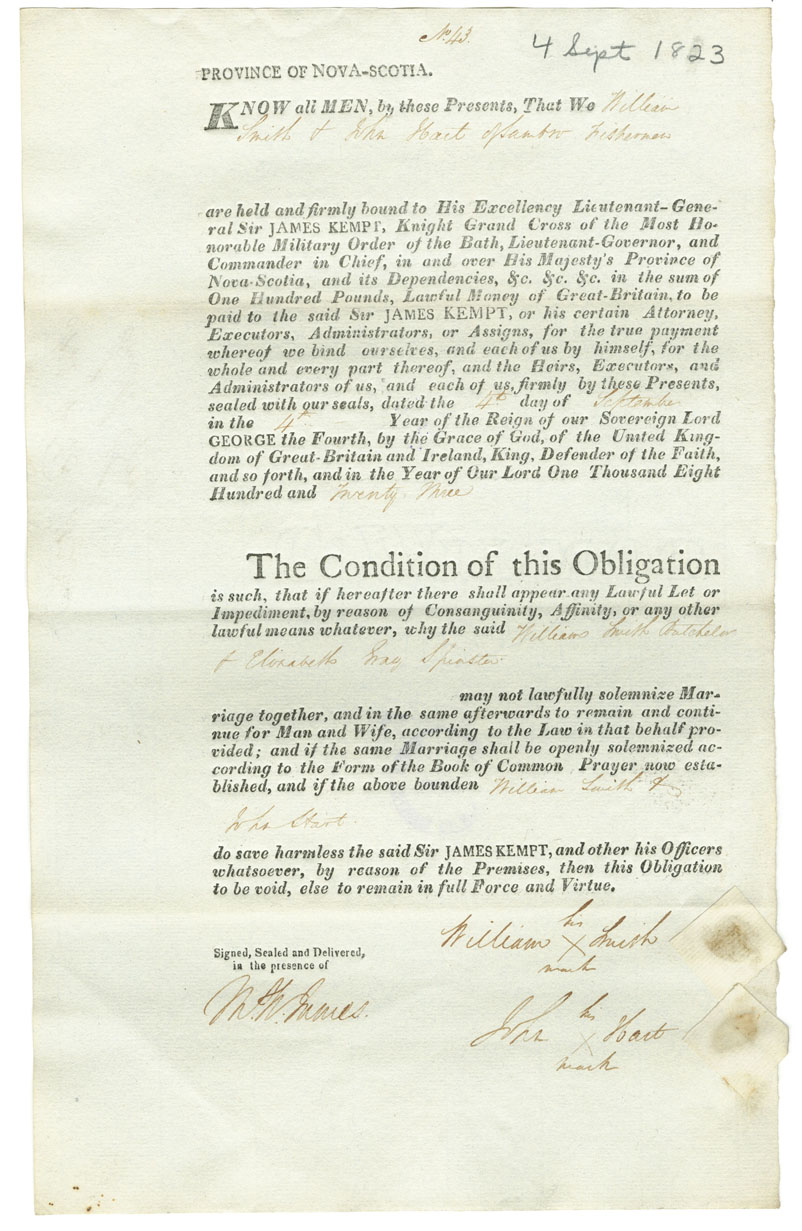 No. 43.
4 Sept 1823
PROVINCE OF NOVA-SCOTIA.
KNOW all MEN, by these Presents, That We William
Smith & John Hart of Sambro Fishermen
are held and firmly bound to His Excellency Lieutenant-Gene-
ral Sir JAMES KEMPT, Knight Grand Cross of the Most Ho-
norable Military Order of the Bath, Lieutenant-Governor, and
Commander in Chief, in and over His Majesty's Province of
Nova-Scotia, and its Dependencies, &c. &c. &c. in the sum of
One Hundred Pounds, Lawful Money of Great-Britain, to be
paid to the said Sir JAMES KEMPT, or his certain Attorney,
Executors, Administrators, or Assigns, for the true payment
whereof we bind ourselves, and each of us by himself, for the
whole and every part thereof, and the Heirs, Executors, and
Administrators of us, and each of us, firmly by these Presents,
sealed with our seals, dated the 4th day of September
in the 4th Year of the Reign of our Sovereign Lord
GEORGE the Fourth, by the Grace of God, of the United King-
dom of Great-Britain and Ireland, King, Defender of the Faith,
and so forth, and in the Year of Our Lord One Thousand Eight
Hundred and Twenty Three
The Condition of this Obligation
is such, that if hereafter there shall appear any Lawful Let or
Impediment, by reason of Consanguinity, Affinity, or any other
lawful means whatever, why the said William Smith Batchelor
& Elizabeth Gray Spinster.
may not lawfully solemnize Mar-
riage together, and in the same afterwards to remain and conti-
nue for Man and Wife, according to the Law in that behalf pro-
vided; and if the same Marriage shall be openly solemnized ac-
cording to the Form of the Book of Common Prayer now esta-
blished, and if the above bounden William Smith &
John Hart.
do save harmless the said Sir JAMES KEMPT, and other his Officers
whatsoever, by reason of the Premises, then this Obligation
to be void, else to remain in full Force and Virtue.
his
William X Smith
mark
Signed, Sealed and Delivered,
in the presence of
James.
his
John X Hart
mark